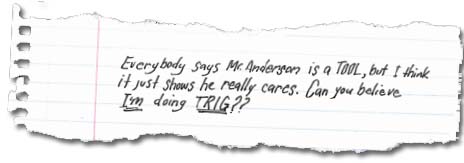 Everybody says Mr. Anderson is a TOOL, but I think
it just shows he really cares. Can you believe
I'm doing TRIG??